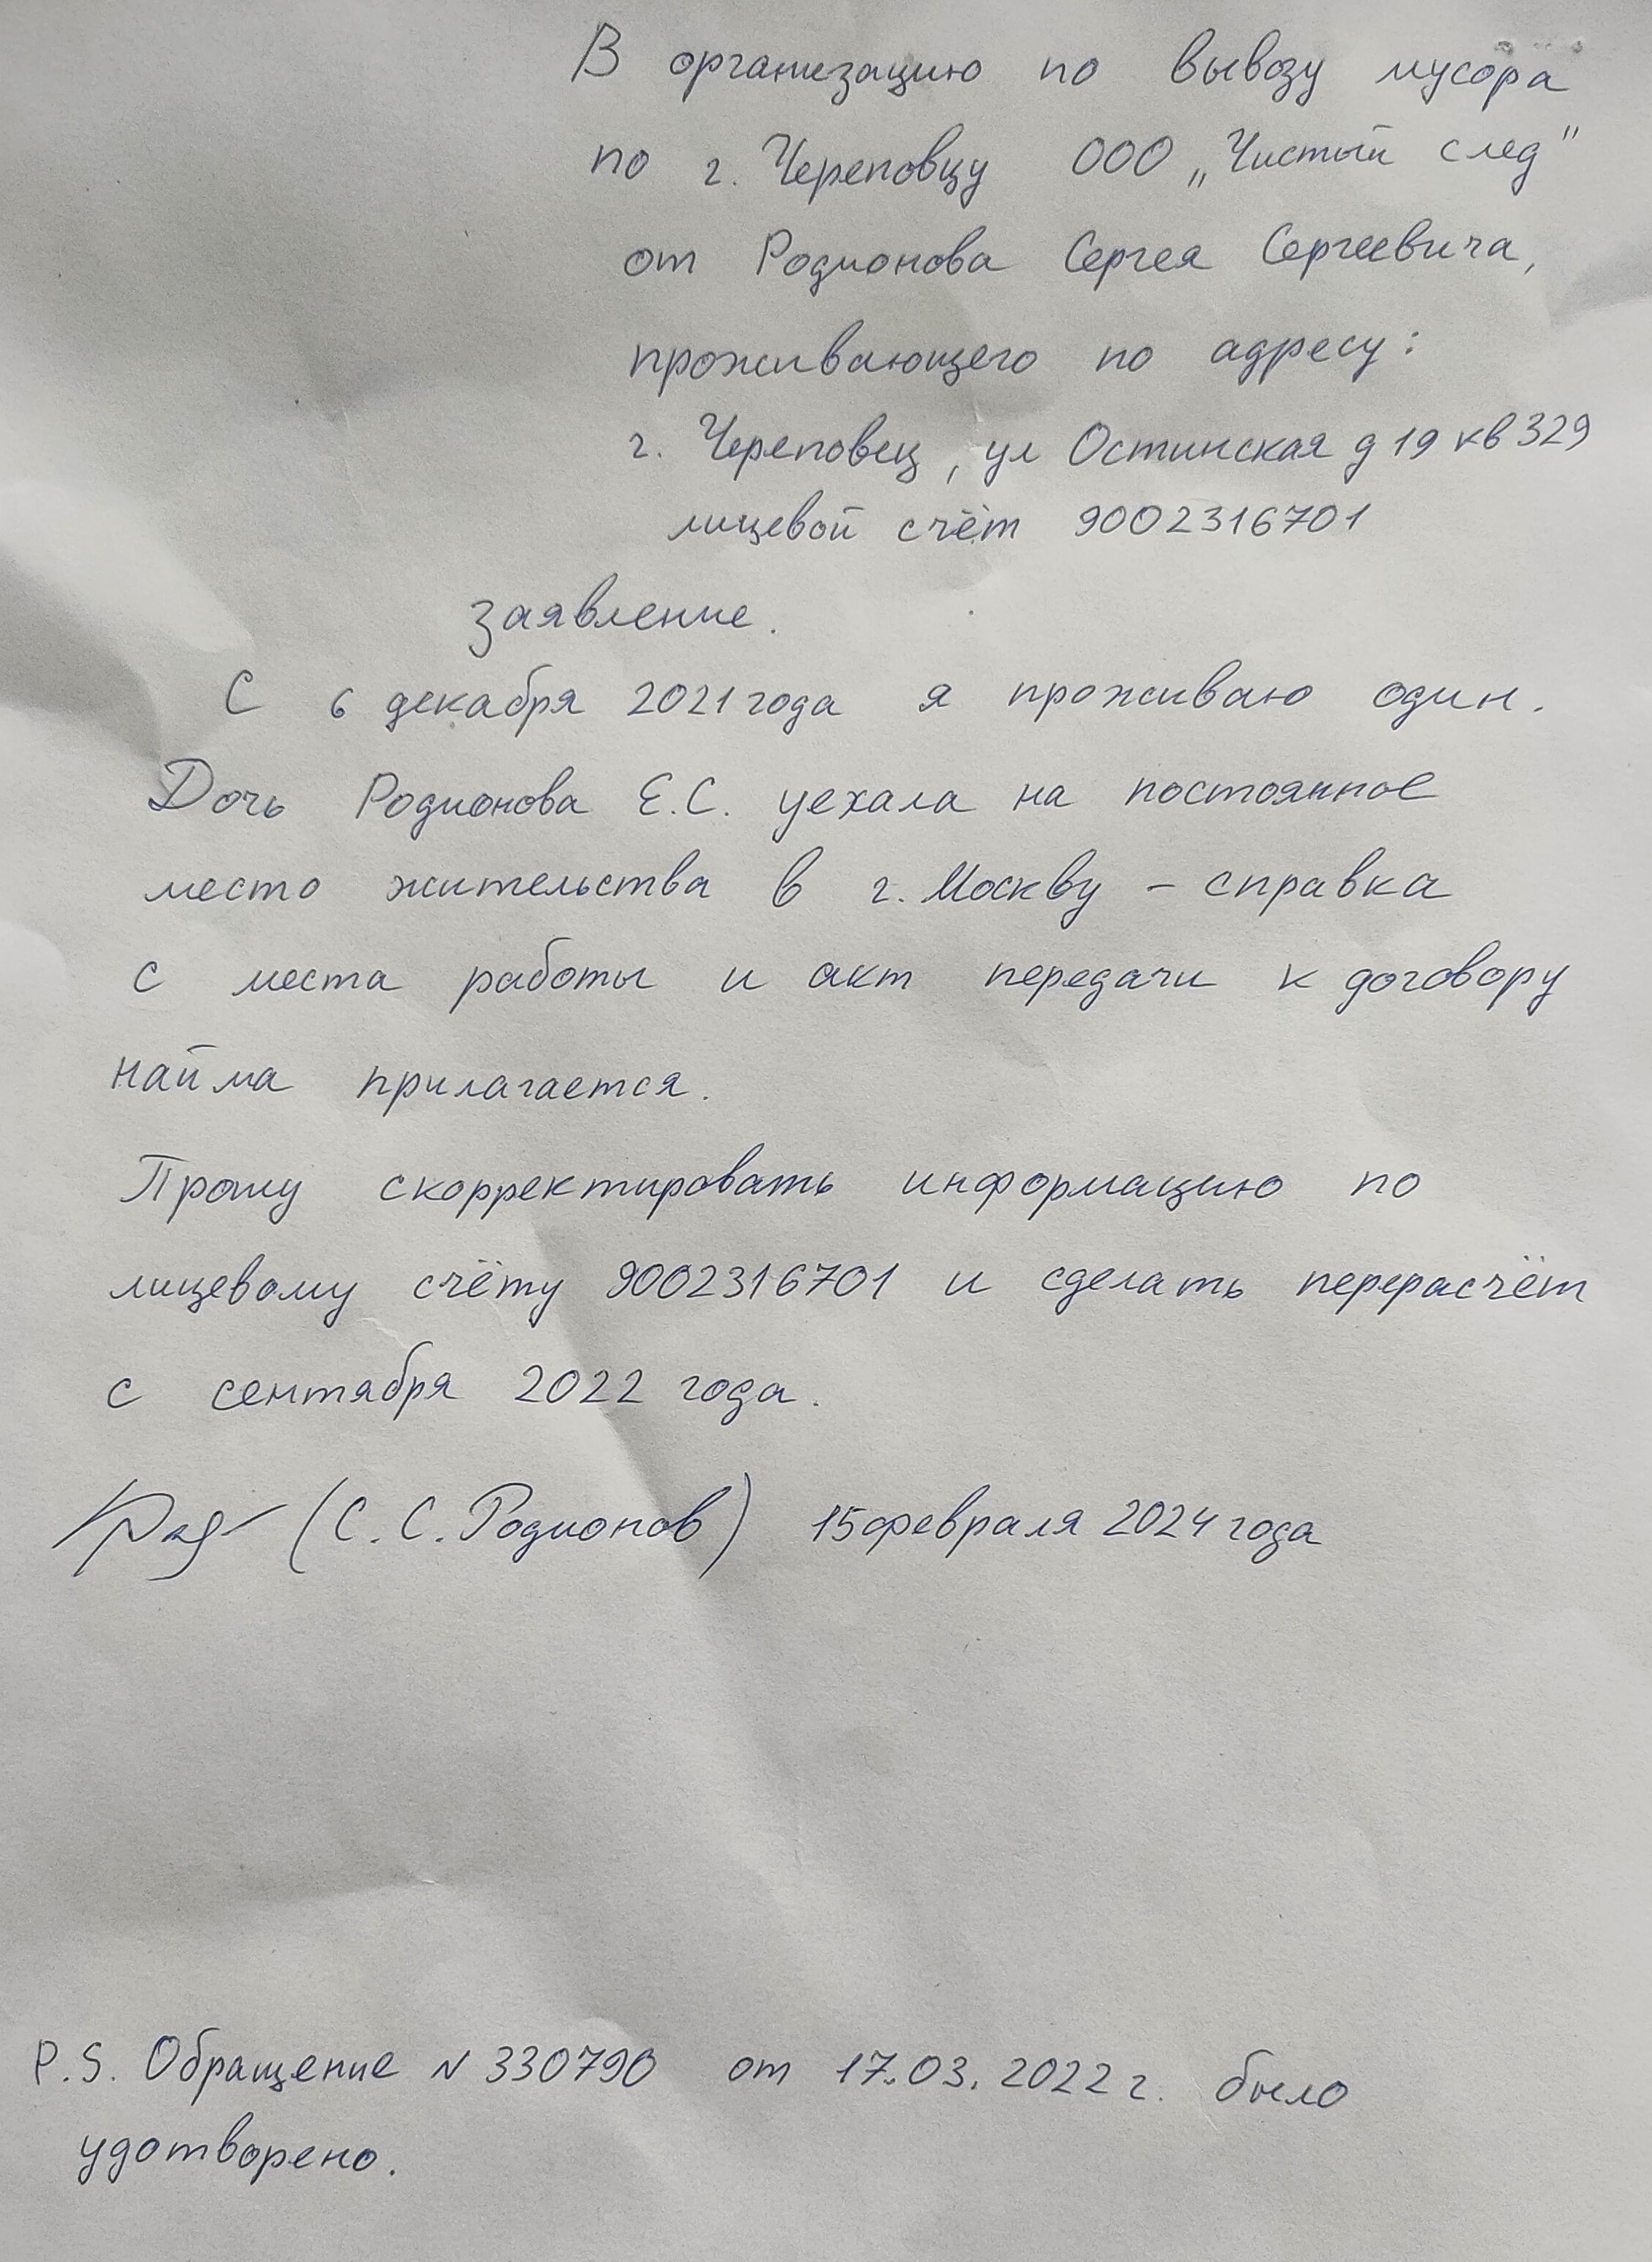 В организацию по вывозу мусора
по г. Череповцу ООО „Чистый след"
от Родионова Сергея Сергеевича,
проживающего по адресу:
г. Череповец, ул Остинская д 19 кв 329
лицевой счёт 9002316701
заявление.
С 6 декабря 2021 года я проживаю один.
Дочь Родионова Е.С. уехала на постоянное
место жительства в г. Москву - справка
с места работы и акт передачи к договору
найма прилагается.
Прошу скорректировать информацию по
лицевому счёту 9002316701 и сделать перерасчёт
с сентября 2022 года.
(С. С. Родионов) 15 февраля 2024 года
P.S. Обращение N 330790 от 17.03.2022 г. было
удотворено.